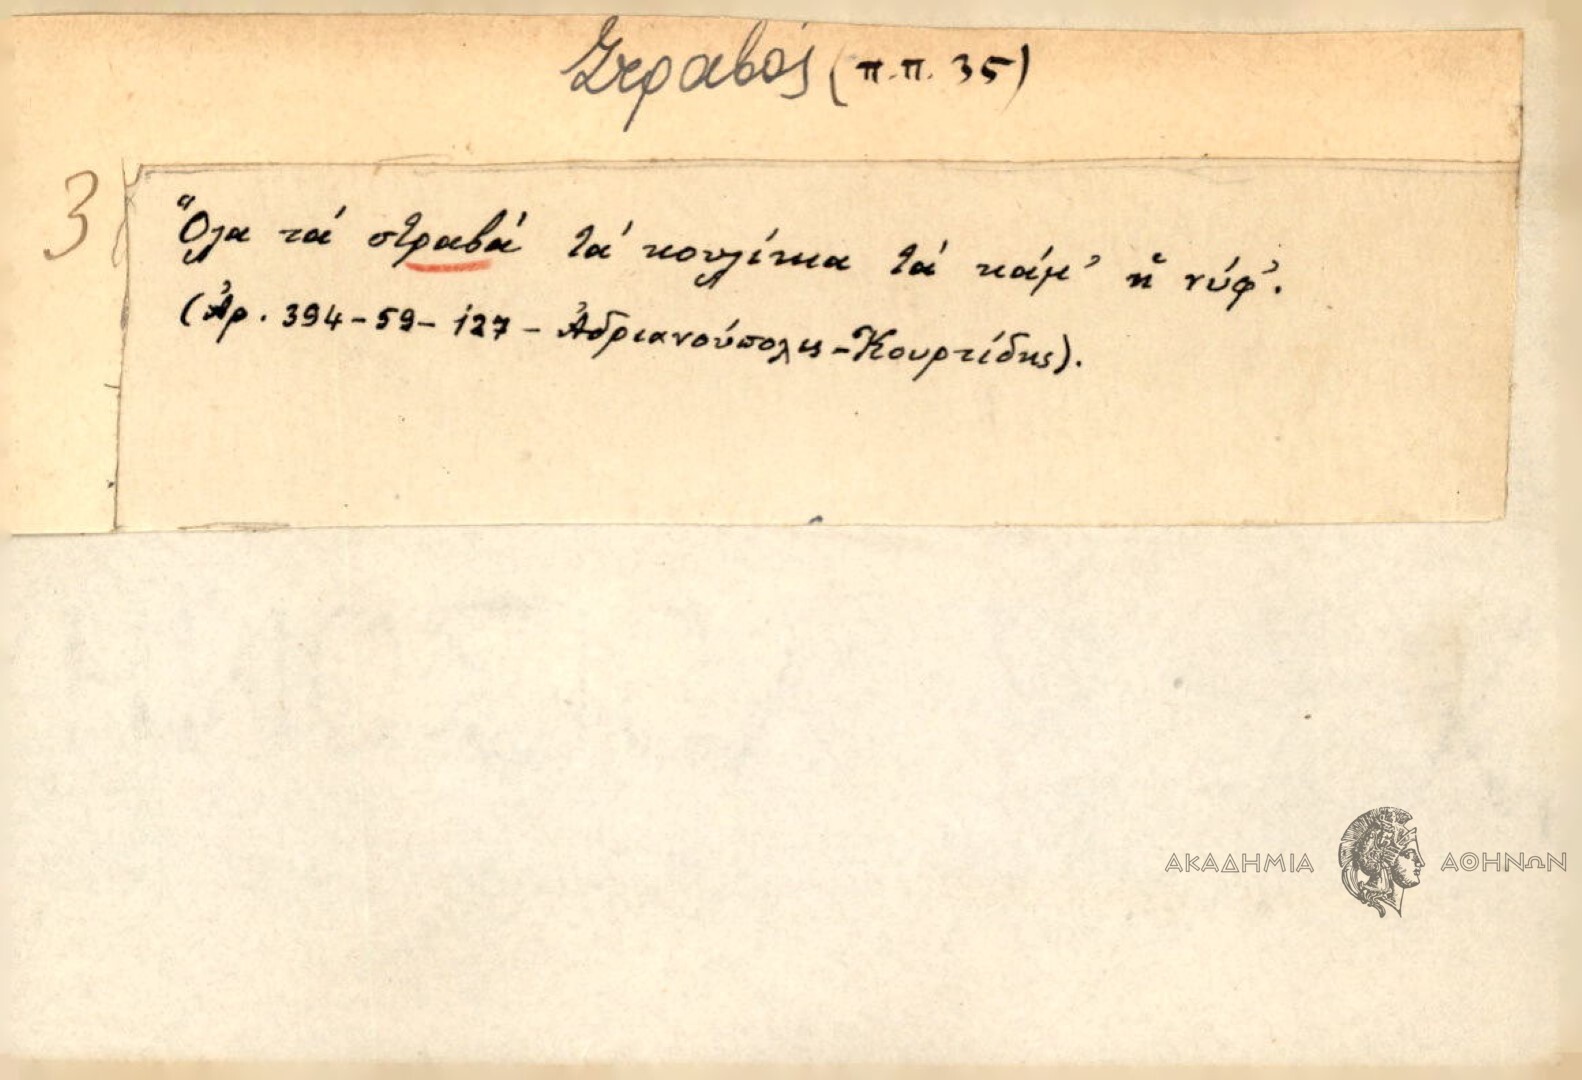 Στραβός (π.π. 35)
3
Ὅλα τά στραβά τά κουλίκια τά κάμ' ἡ νύφ'.
(Ἀρ. 394-59-127-Ἀδριανούπολις-Κουρτίδης).
ΑΚΑΔΗΜΙΑ ΑΘΗΝΩΝ